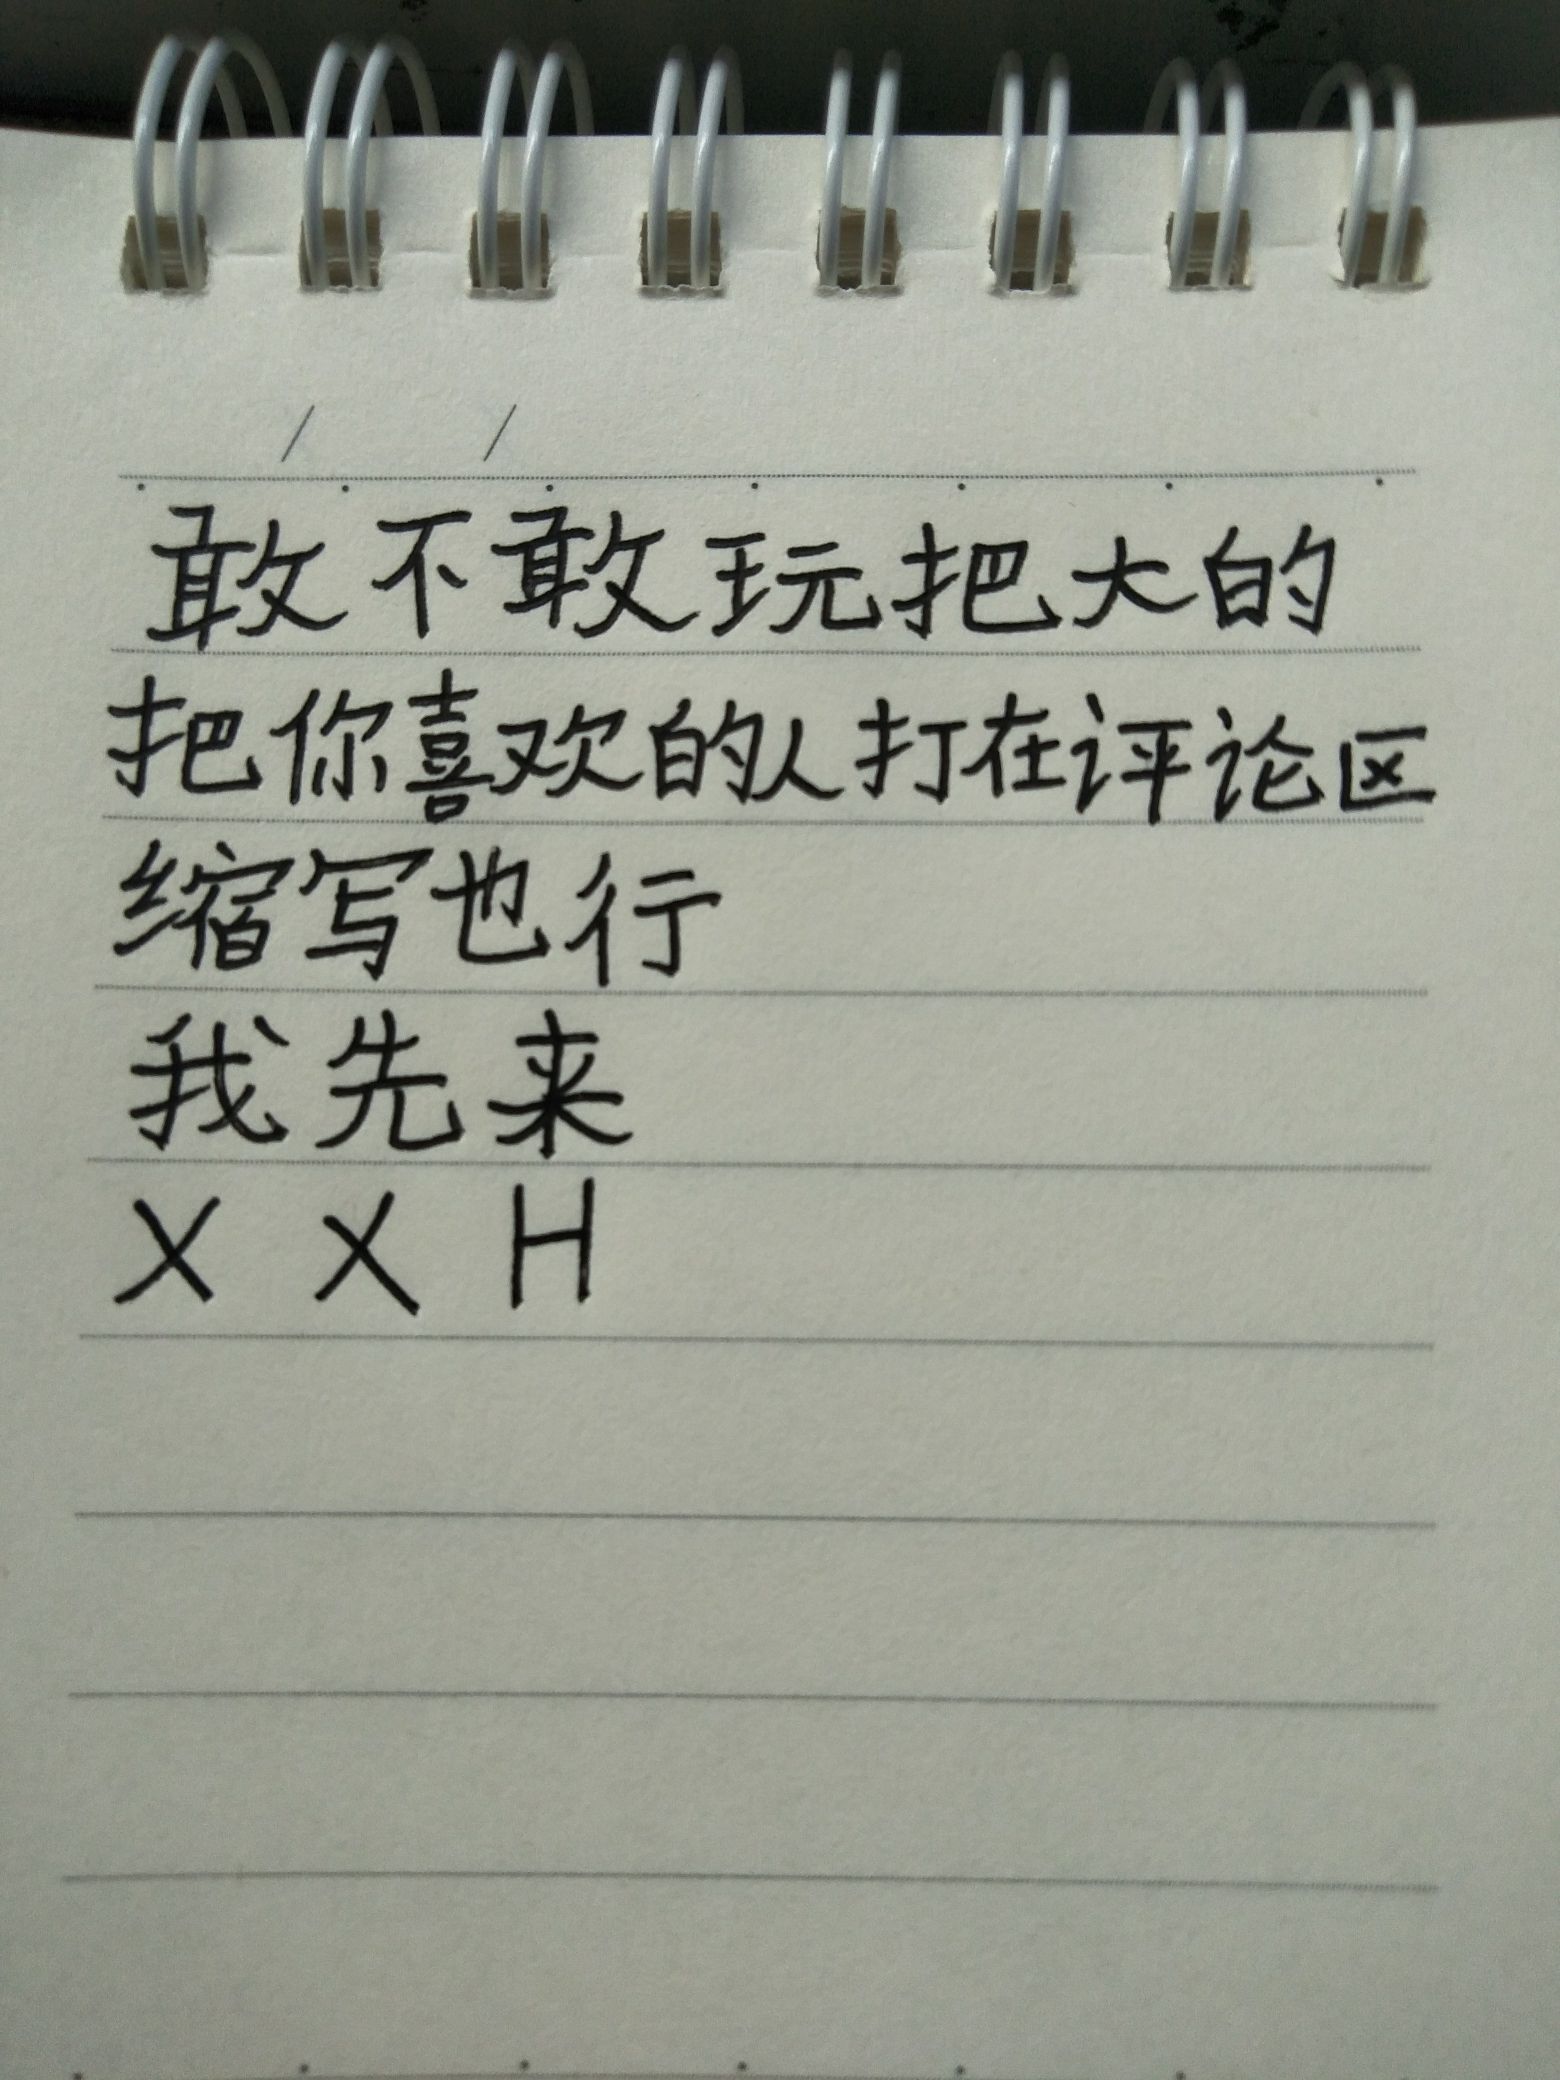 敢不敢玩把大的
把你喜欢的人打在评论区
缩写也行
我先来
X X H